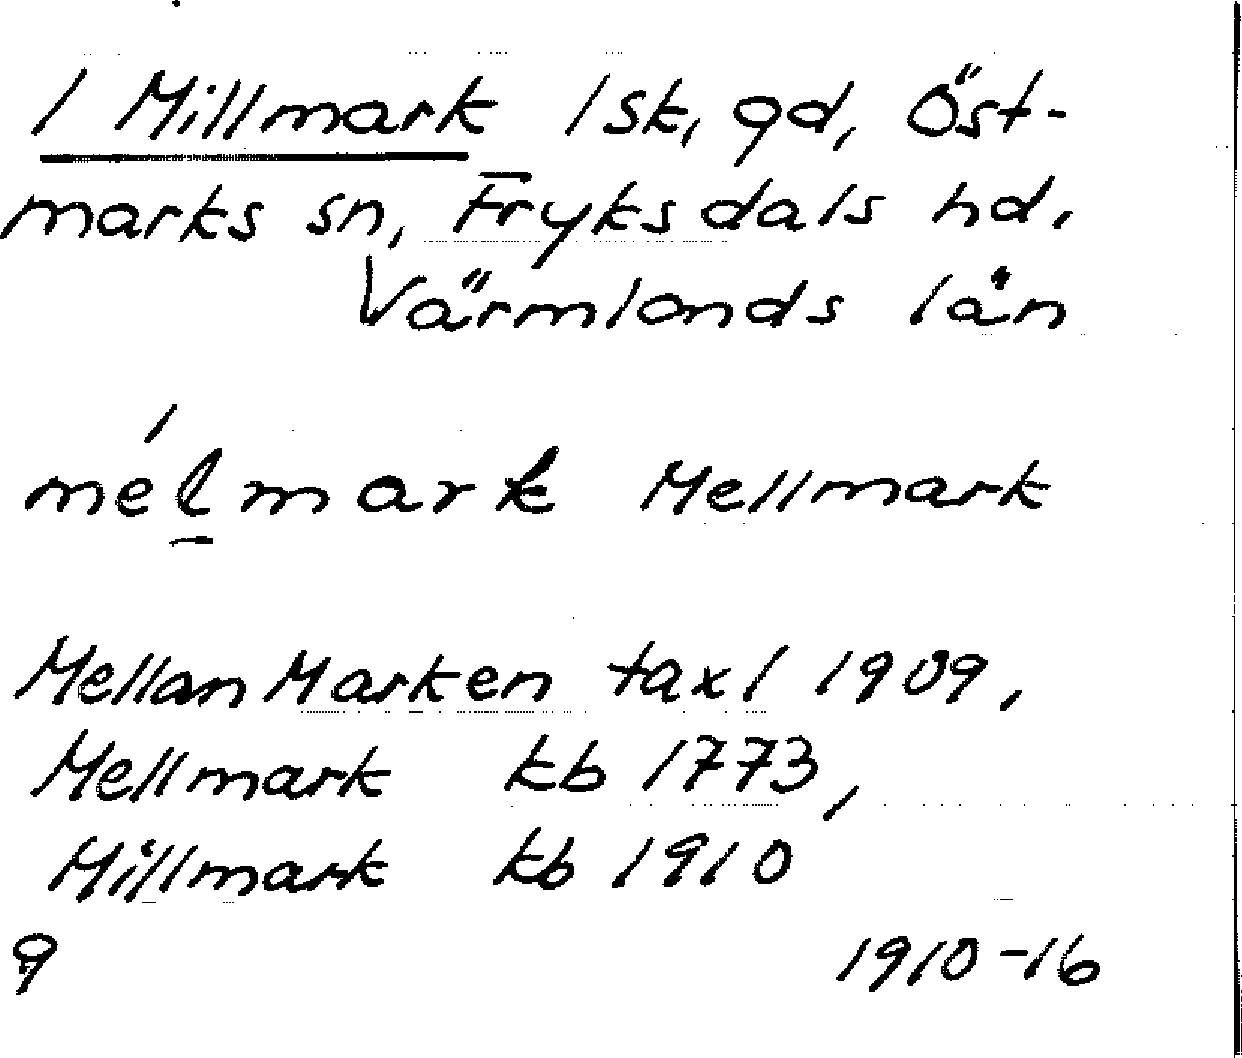 1 Millmark 1 sk, gd, Öst-
marks sn, Fryksdals hd,
Värmlands län
mélmark Mellmark
MellanMarken taxl 1909,
Mellmark kb 1773,
Millmark kb 1910
9 1910-16